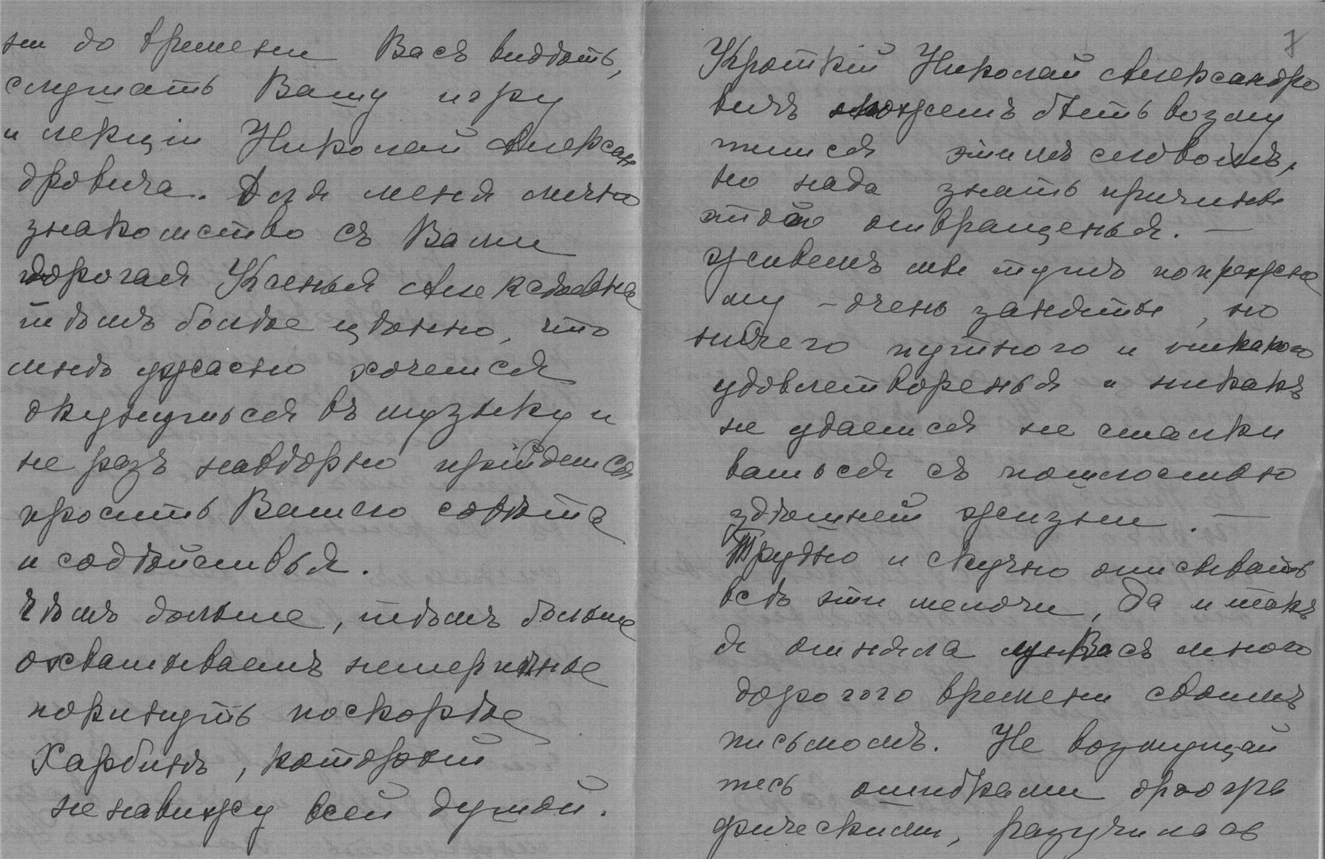 ни до времени Васъ видѣть,
слушать Вашу игру
и лекціи Николай Алексан
дровича. Для меня лично
знакомство съ Вами
дорогая Ксенья Алексѣевна
тѣмъ болѣе цѣнно, что
мнѣ ужасно хочется
окунуться въ музыку и
не разъ навѣрно прійдется
просить Вашего совѣта
и содѣйствья.
Чѣмъ дольше, тѣмъ больше
охватываетъ нетерпѣнье
покинуть поскорѣе
Харбинъ, который
ненавижу всей душой.
7
Кроткій Николай Александро
вичъ можетъ быть возму
тится этимъ словомъ,
но надо знать причины
этого отвращенья. —
Живемъ мы тутъ попрежне
му – очень заняты, но
ничего путного и никакого
удовлетворенья и никакъ
не удается не сталки
ваться съ пошлостью
здѣшней жизни. —
Трудно и скучно описывать
всѣ эти мелочи, да и такъ
я отняла у Васъ много
дорогого времени своимъ
письмомъ. Не возмущай
тесь ошибками орѳогра
фическими, разучилась